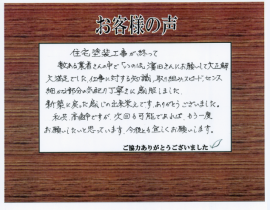 お客様の声
住宅塗装工事が終って
数ある業者さんの中で「いろは」濱田さんにお願いして大正解
大満足でした。仕事に対する知識、取り組み、スピード、センス
細かい部分の気配り丁寧さに感服しました
新築に戻った感じの出来栄えです。ありがとうございました。
私共 高齢ですが、次回も可能であれば、もう一度
お願いしたいと思っています。今後とも宜しくお願いします。
ご協力ありがとうございました